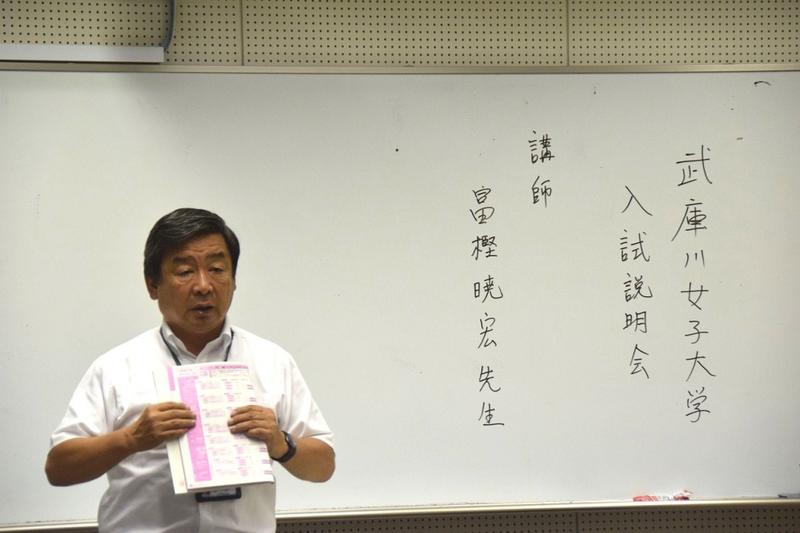 武庫川女子大学
入試説明会
講師
冨樫暁宏先生